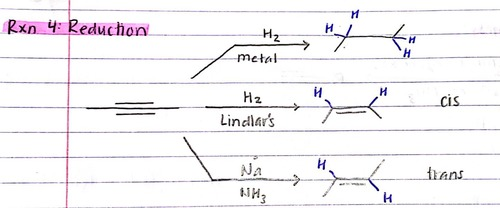 Rxn 4: Reduction
H2
metal
H H H H
H2
Lindlar's
H H
cis
Na
NH3
H
H
trans